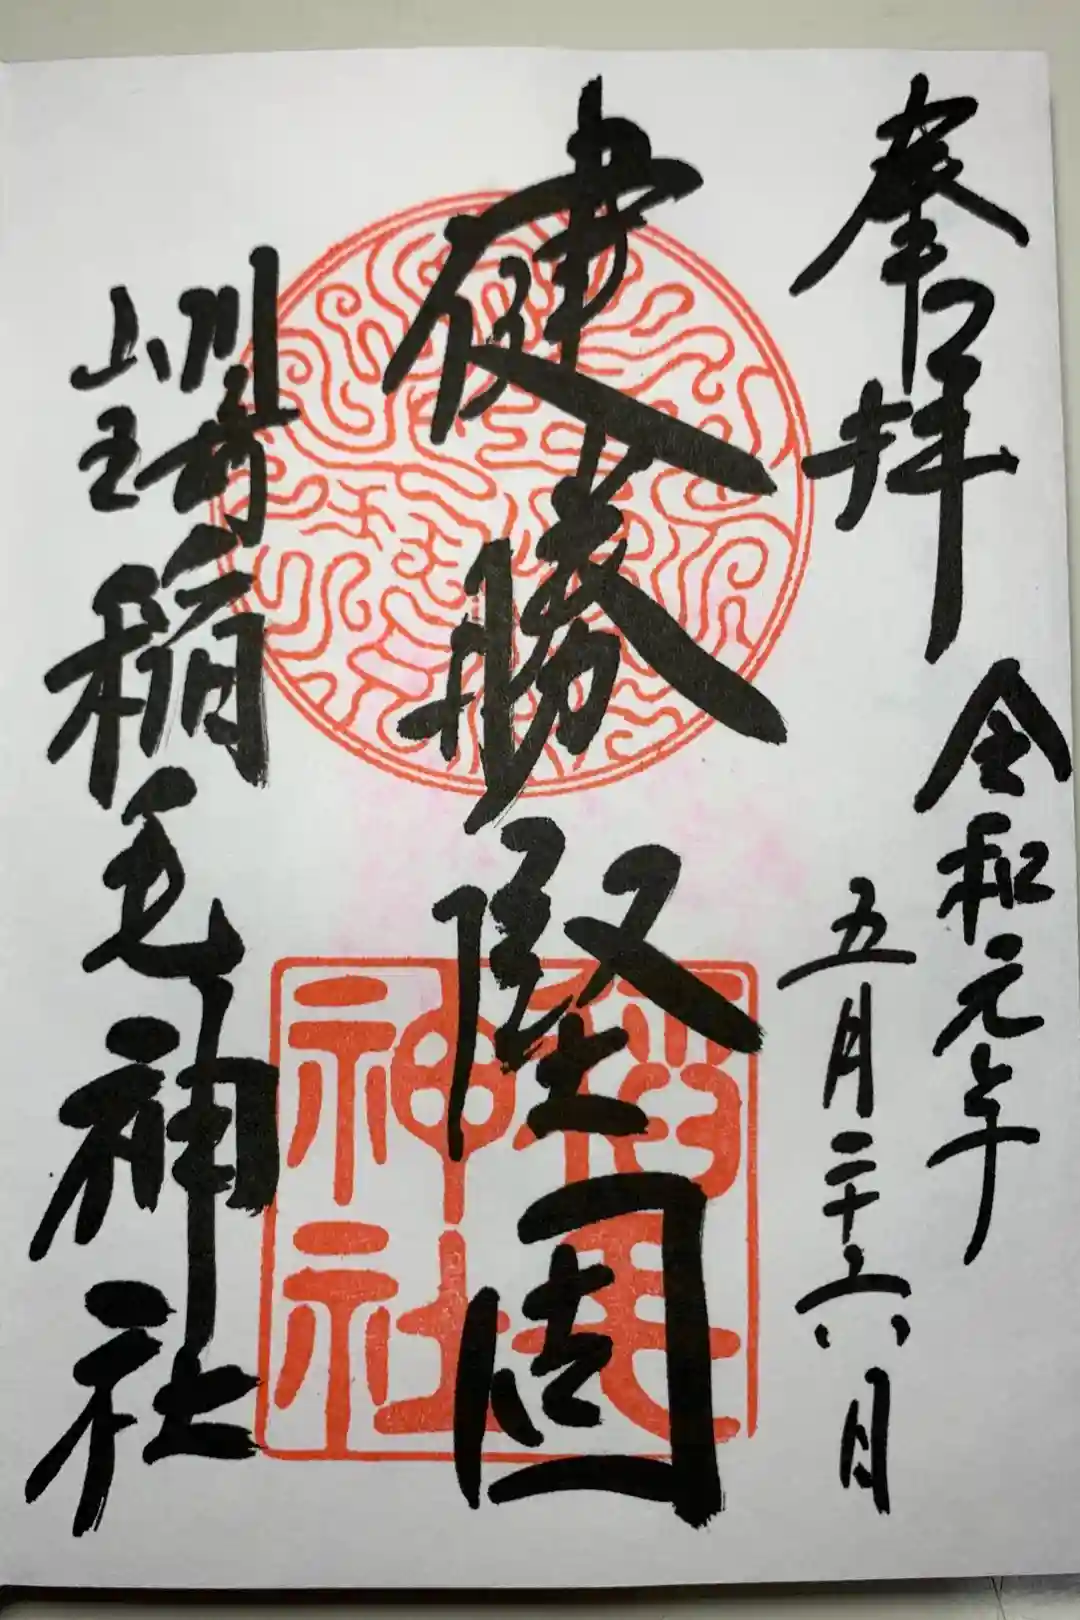 奉拝
令和元年
五月二十六日
健勝堅固
川崎
山王
稲毛神社
稲毛
神社